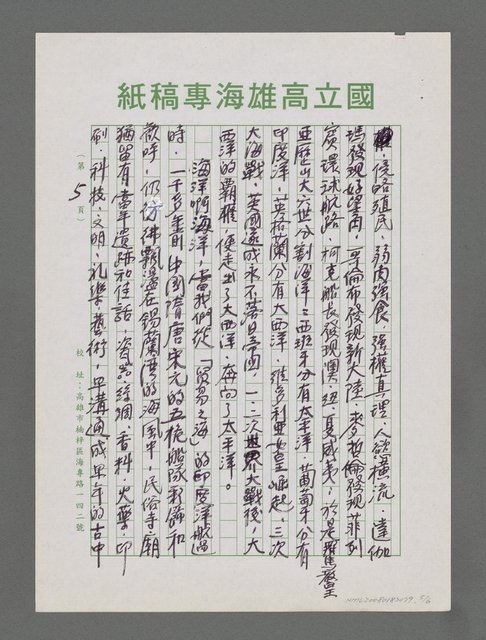 國立高雄海專稿紙
，侵略殖民，弱肉強食，強權真理，人欲橫流。達伽
瑪發現好望角，哥倫布發現新大陸，麥哲倫發現菲列
賓，環球航路，柯克船長發現澳、紐、夏威夷，於是羅馬教皇
亞歷山大六世分割海洋：西班牙分有太平洋，葡萄牙分有
印度洋，英格蘭分有大西洋，維多利亞女皇崛起，三次
大海戰，英國遂成永不落日帝國，一、二次世界大戰後，大
西洋的霸權，便走出了大西洋，奔向了太平洋。
海洋啊海洋，當我們從「貿易之海」的印度洋航過
時，一千多年前中國隋唐宋元的五桅船隊彩飾和
歡呼，仍彷彿飄蕩在錫蘭葉的海風中，民俗寺廟
猶留有當年遺跡和佳話，瓷器、絲綢、香料、火藥、印
刷、科技、文明、禮樂、藝術，早溝通成早年的古中
（第5頁）
校址：高雄市楠梓區海專路一四二號
NMTL20080182079 5/6